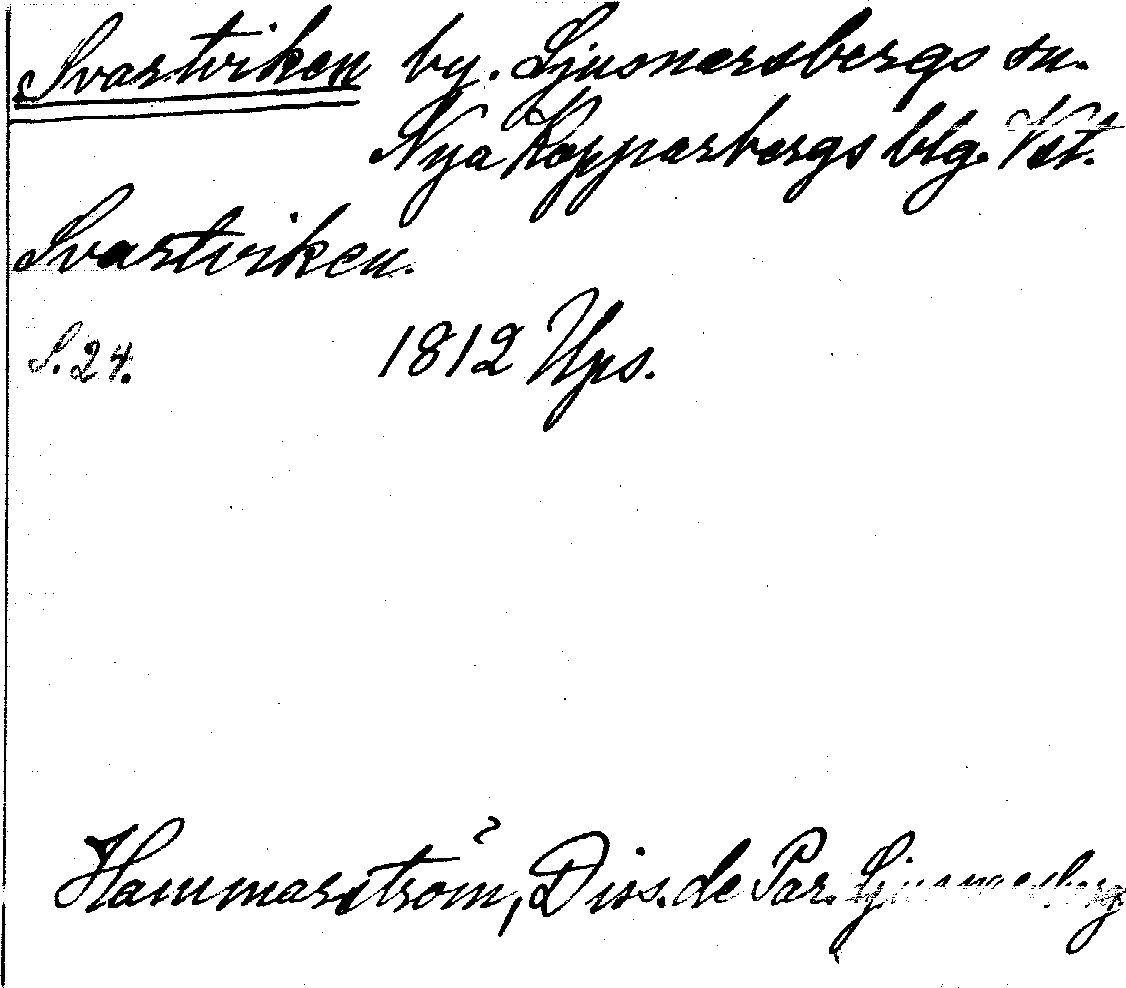 Svartviken by. Ljusnarsbergs sn.
Nya Kopparbergs blg. Vst.
Svartviken.
S. 24. 1812 Ups.
Hammarström, Diss. de Par. Ljusnarsberg